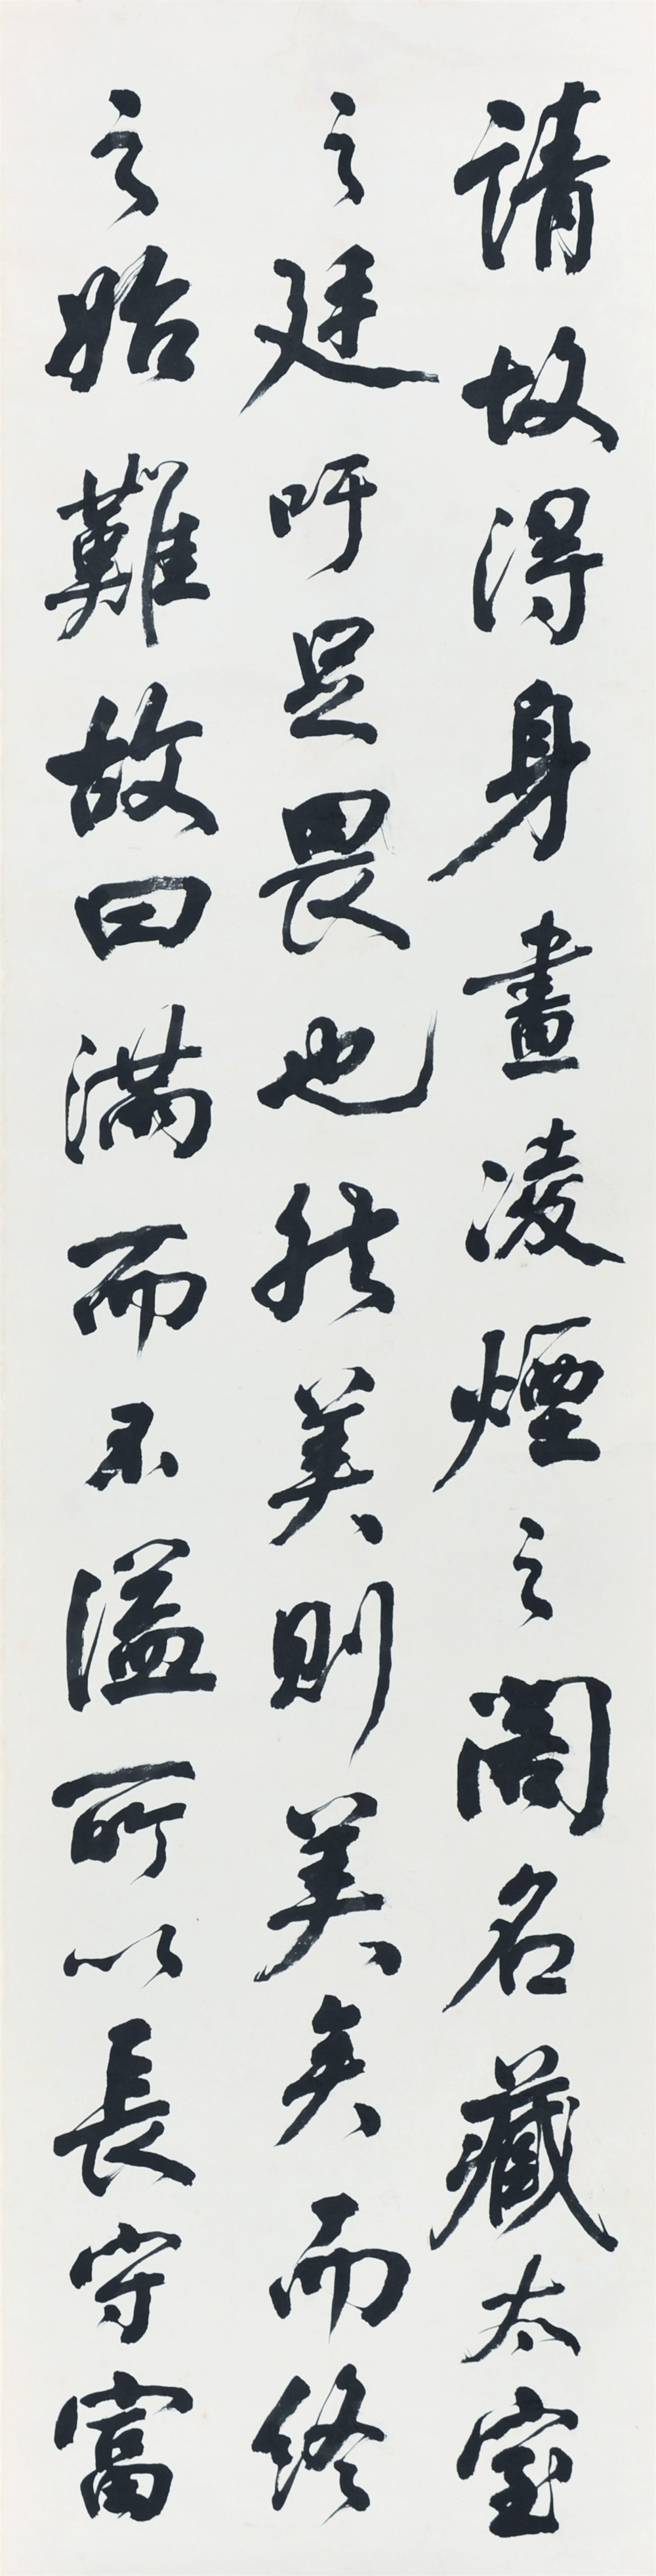 請故得身畫凌煙之閣名藏太室
之廷吁足畏也然美則美矣而終
之始難故曰滿而不溢所以長守富